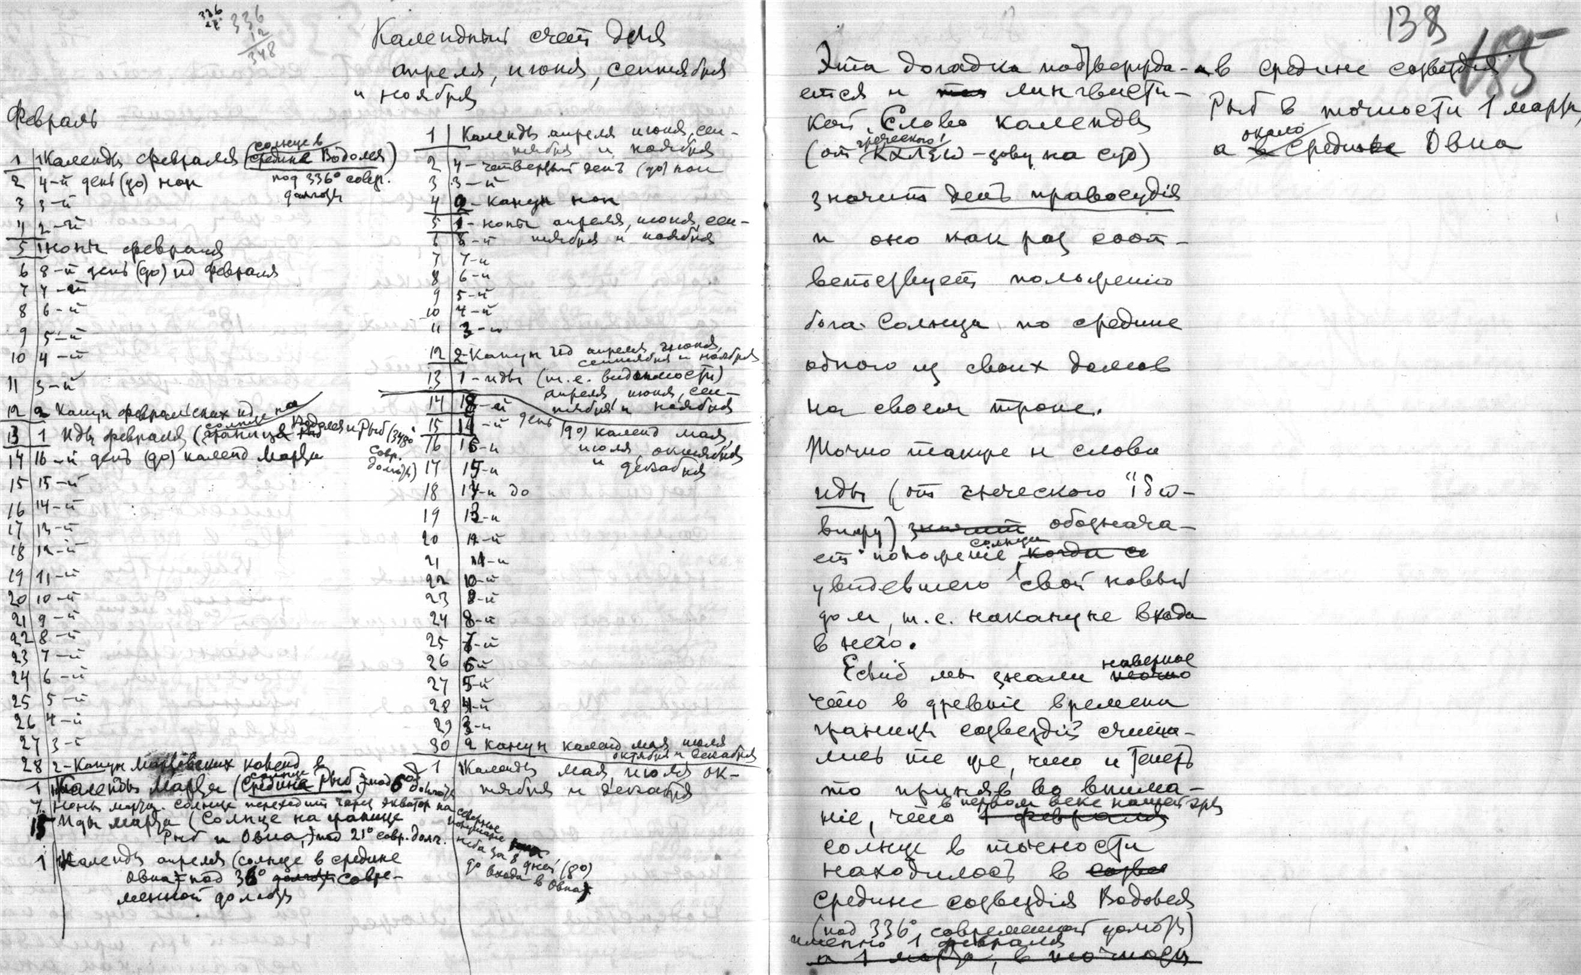 336
12
348
Календный счет дня
апреля, июня, сентября
и ноября
Февраль
1 1 Календы февраля (солнце в
средине Водолея)
под 336° совр.
долготы
2 4-й день (до) нон
3 3-й
4 2-й
5 1 ноны февраля
6 8-й день (до) ид февраля
7 7-й
8 6-й
9 5-й
10 4-й
11 3-й
12 2 Канун февральских ид
13 1 Иды февраля (солнце на границе Водолея и Рыб (348°
совр.
долготы)
14 16-й день (до) календ Марта
15 15-й
16 14-й
17 13-й
18 12-й
19 11-й
20 10-й
21 9-й
22 8-й
23 7-й
24 6-й
25 5-й
26 4-й
27 3-й
28 2-Канун Мартовских календ
1 Календы Марта (солнце средина Рыб) под 6° долготы
7 Ноны марта. Солнце переходит через экватор на северное
полушарие
неба за 8 дней
до входа в Овна
15 Иды марта (Солнце на границе
Рыб и Овна,) под 21° совр. долг.
1 Календы апреля (солнце в средине
Овна под 36° долготы совре-
менной долготы
1 Календы апреля июня, сен-
тября и ноября
2 4-четвертый день (до) нон
3 3-й
4 2-Канун нон
5 1-ноны апреля, июня, сен-
тября и ноября
6 8-й
7 7-й
8 6-й
9 5-й
10 4-й
11 3-й
12 2-Канун ид апреля, июня,
сентября и ноября
13 1-иды (т.е. видимости)
апреля, июня, сен-
тября и ноября
14 18-й
15 17-й день
(до) календ мая,
июля, октября
и декабря
16 16-й
17 15-й
18 14-й до
19 13-й
20 12-й
21 11-й
22 10-й
23 9-й
24 8-й
25 7-й
26 6-й
27 5-й
28 4-й
29 3-й
30 2 Канун календ мая, июля
октября и декабря
1 Календы мая, июля ок-
тября и декабря
138
185
Эта догадка подтвержда-
ется и лингвисти-
кой. Слово календы
(от греческого ΚΑΛΕΩ - зову на суд)
значит день правосудія
и оно как раз соот-
ветствует положению
бога Солнца по средине
одного из своих домов
на своем троне.
Точно также и слова
иды (от греческого
вижу) значит обознача-
ет положеніе солнца когда
увидевшего свой новый
дом, т.е. накануне входа
в него.
Еслиб мы знали наверное
что в древніе времена
границы созвездій счита-
лись те же, что и теперь
то приняв во внима-
ніе, что в первом веке нашей эры 1 февраля
солнце в точности
находилось в
средине созвездія Водолея
(под 336° современной долготы)
именно 1 февраля
а 1 марта, в точности
а в средине созвездія
Рыб в точности 1 марта,
а около в средине Овна